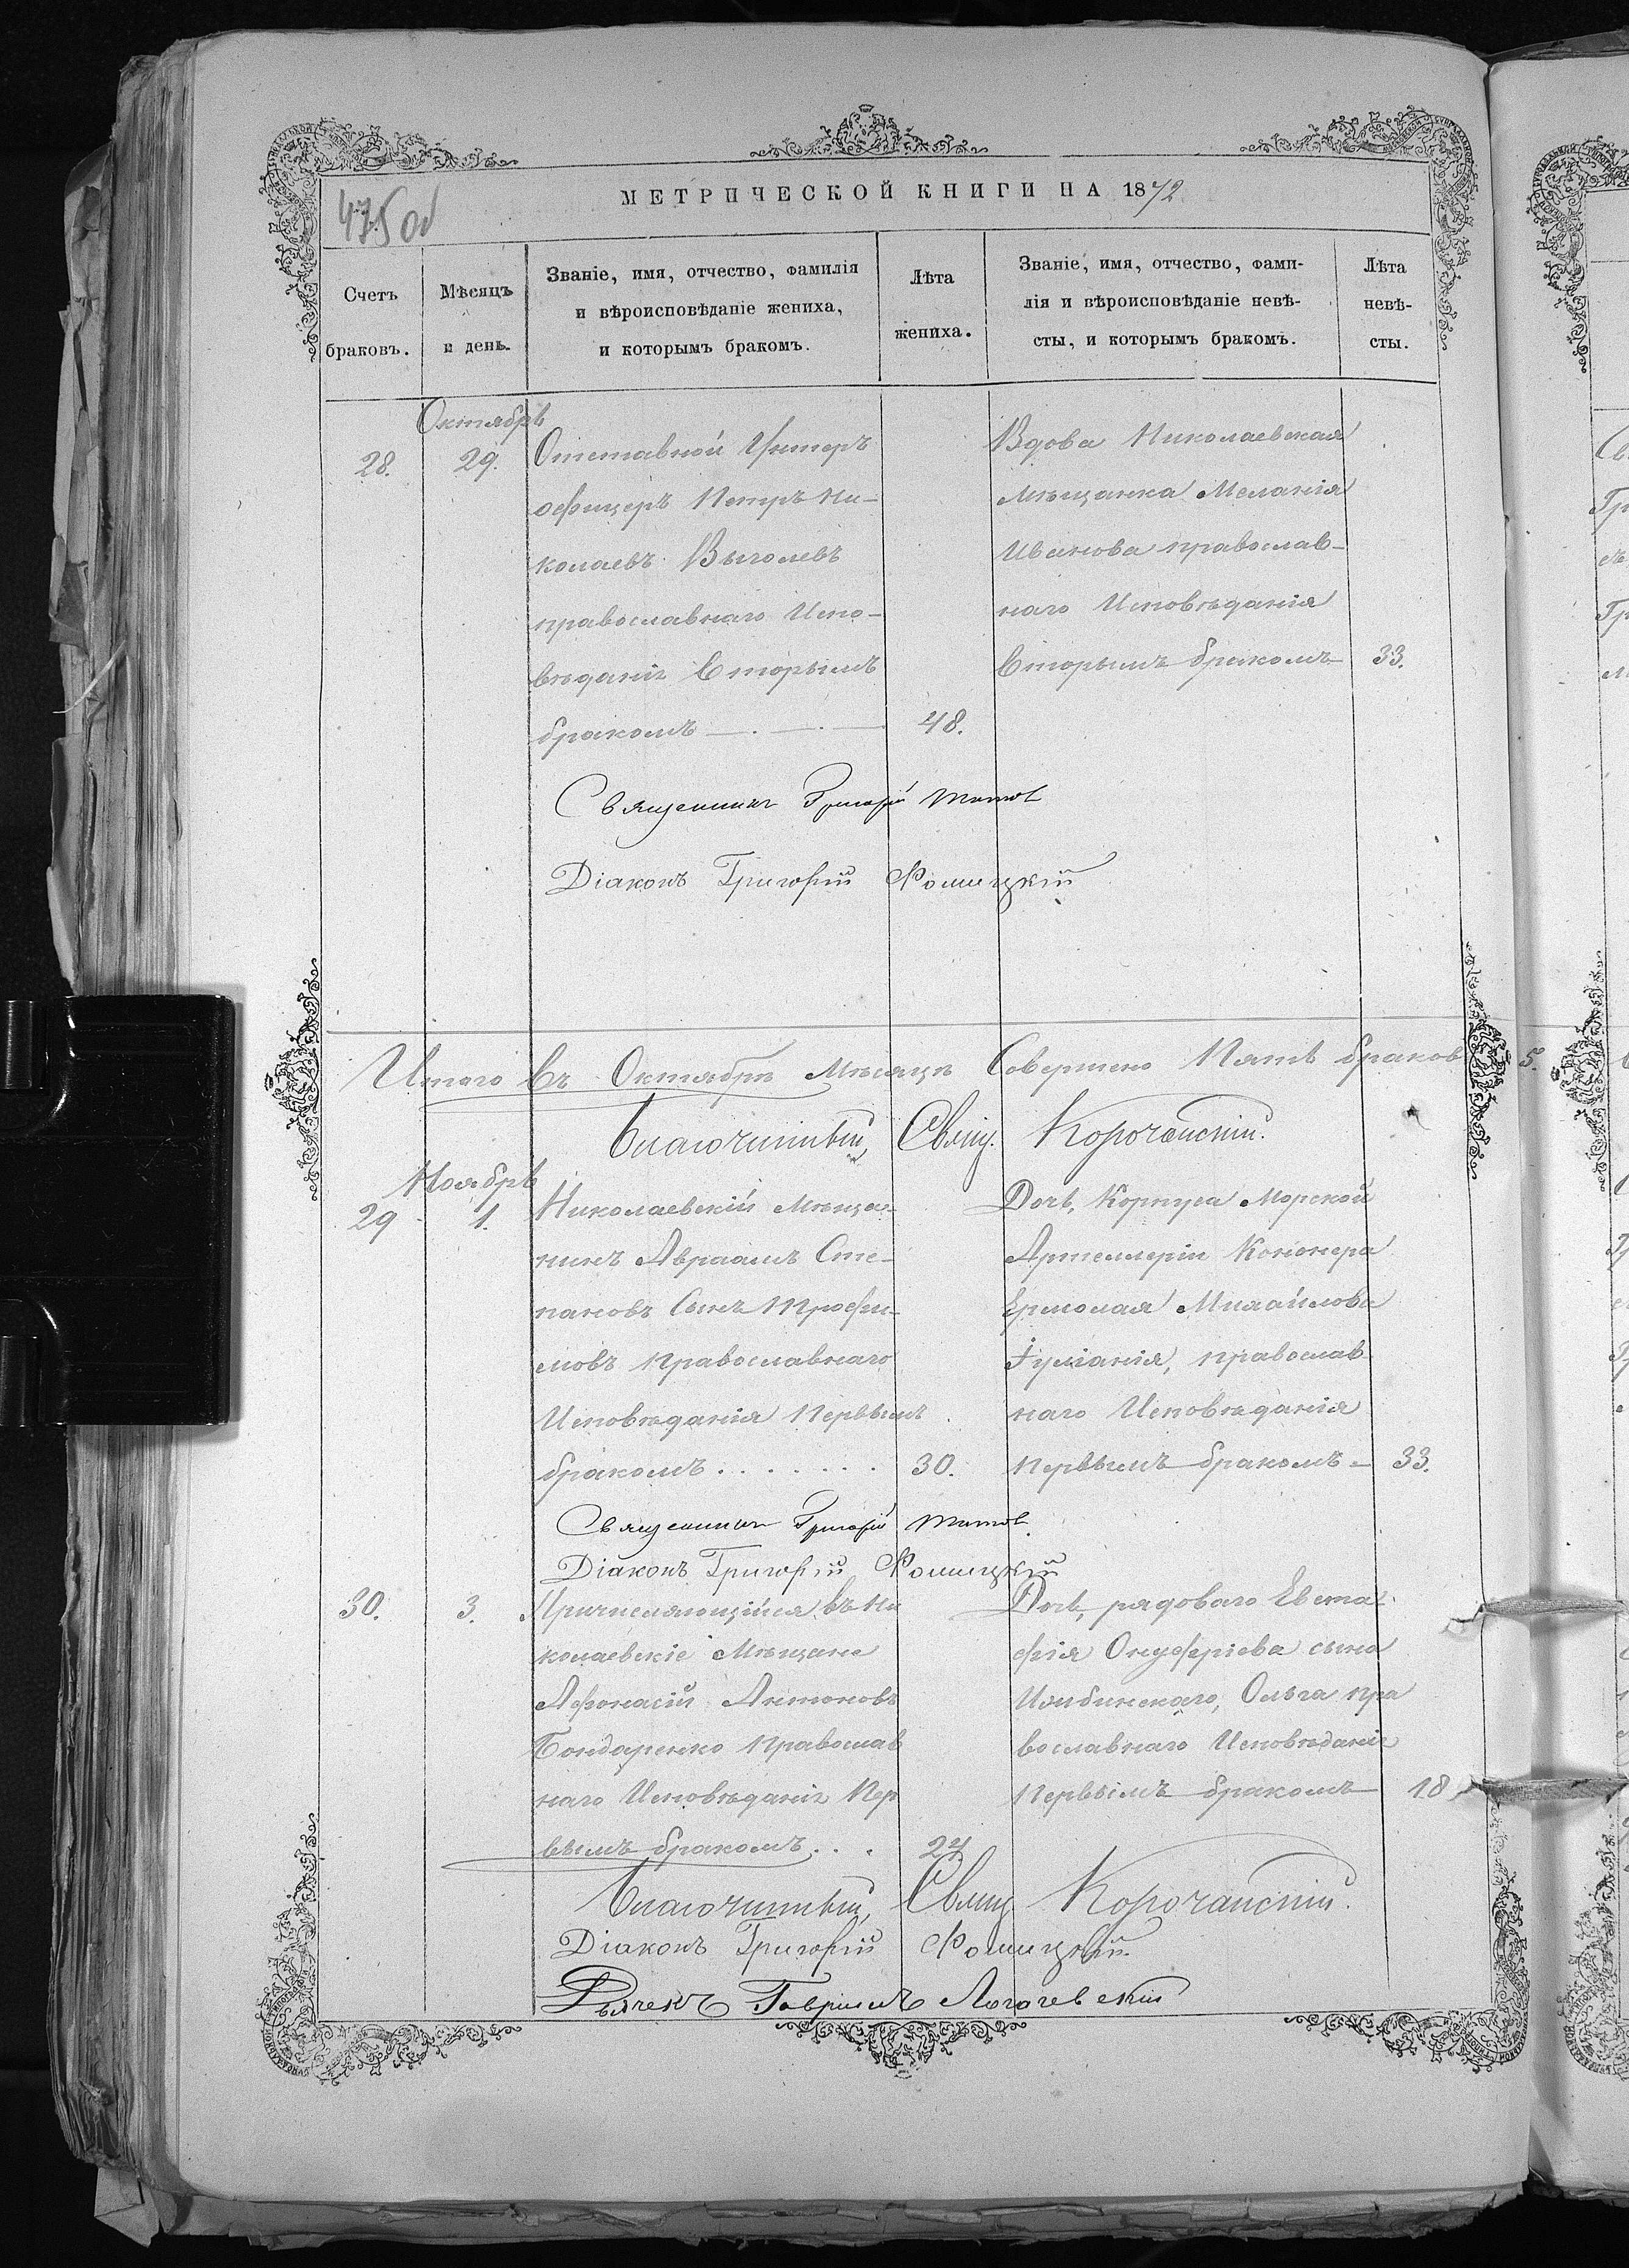 МЕТРИЧЕСКОЙ КНИГИ НА 1872
475 об
Счетъ браковъ.
Мѣсяцъ и день.
Званіе, имя, отчество, фамилія
и вѣроисповѣданіе жениха,
и которымъ бракомъ.
Лѣта жениха.
Званіе, имя, отчество, фами-
лія и вѣроисповѣданіе невѣ-
сты, и которымъ бракомъ.
Лѣта невѣ-
сты.
Октябрь
28. 29.
Отставной Унтеръ
офицеръ Петръ Ни-
колаевъ Выголевъ
православнаго Испо-
вѣданія вторымъ
бракомъ 48.
Вдова Николаевская
Мѣщанка Меланія
Иванова православ-
наго Исповѣданія
вторымъ бракомъ 33.
Священникъ Григорій Титов
Діаконъ Григорій Фомицкій
Итого въ Октябрѣ Мѣсяцѣ Совершено Пять браков 5.
Благочинный, Свящ. Корочанскій.
Ноябрь
29 1.
Николаевскій Мѣща-
нинъ Авраамъ Сте-
пановъ Сынъ Трофи-
мовъ Православнаго
Исповѣданія Первымъ
бракомъ . . . . . . . 30.
Дочь, Корпуса Морской
Артеллеріи Кононера
Ермолая Михайлова
Іуліанія, православ
наго Исповѣданія
первымъ бракомъ - 33.
Священникъ Григорій Титов.
Діаконъ Григорій Фомицкій
30. 3.
Причисляющійся въ Ни
колаевскіе Мѣщане
Афонасій Антоновъ
Бондаренко Православ
наго Исповѣданія Пер
вымъ бракомъ . . . 24
Дочь, рядоваго Евста-
фія Онуфріева сына
Ольга пра
вославнаго Исповѣданія
Первымъ бракомъ 18
Благочинный, Свящ Корочанскій.
Діаконъ Григорій Фомицкій.
Дьячекъ Гавріилъ Логачевскій